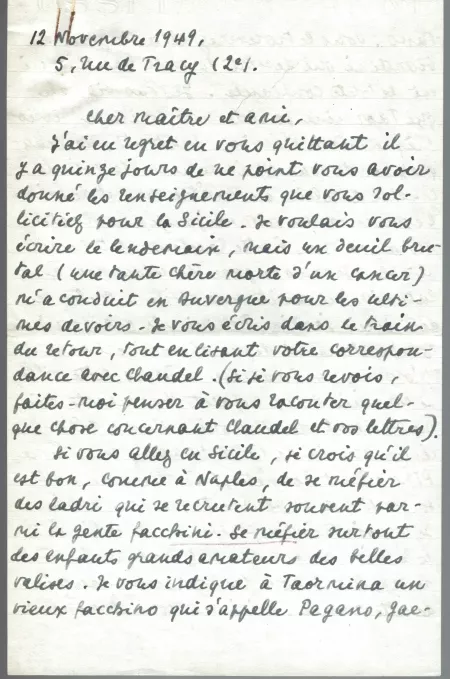 12 Novembre 1949,
5, rue de Tracy (2e).
Cher Maître et ami,
J'ai eu regret en vous quittant il
y a quinze jours de ne point vous avoir
donné les renseignements que vous sol-
licitiez pour la Sicile. Je voulais vous
écrire le lendemain, mais un deuil bru-
tal (une tante chère morte d'un cancer)
m'a conduit en Auvergne pour les ulti-
mes devoirs. Je vous écris dans le train
du retour, tout en lisant votre correspon-
dance avec Claudel. (Si je vous revois,
faites-moi penser à vous raconter quel-
que chose concernant Claudel et vos lettres).
Si vous allez en Sicile, je crois qu'il
est bon, comme à Naples, de se méfier
des ladri qui se recrutent souvent par-
mi la gente facchini. Se méfier surtout
des enfants grands amateurs des belles
valises. Je vous indique à Taormina un
vieux facchino qui s'appelle Pagano, Gae-